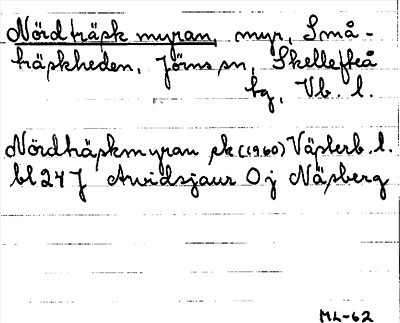 Nördträskmyran, myr, Små-
träskheden, Jörns sn, Skellefteå
tg, Vb. l.
Nördträskmyran ek (1960) Västerb. l.
bl 24 J Arvidsjaur Ö j Näsberg
ML-62